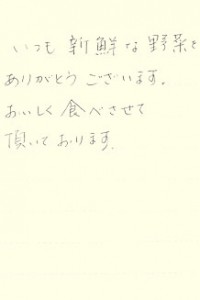 いつも新鮮な野菜を
ありがとうございます。
おいしく食べさせて
頂いております。